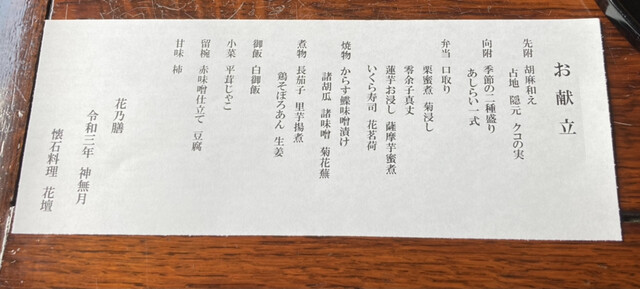 お献立
先附 胡麻和え
占地 隠元 クコの実
向附 季節の二種盛り
あしらい一式
弁当 口取り
栗蜜煮 菊浸し
零余子真丈
蓮芋お浸し 薩摩芋蜜煮
いくら寿司 花茗荷
焼物 からす鰈味噌漬け
諸胡瓜 諸味噌 菊花蕪
煮物 長茄子 里芋揚煮
鶏そぼろあん 生姜
御飯 白御飯
小菜 平茸じゃこ
留椀 赤味噌仕立て 豆腐
甘味 柿
花乃膳
令和三年 神無月
懐石料理 花壇